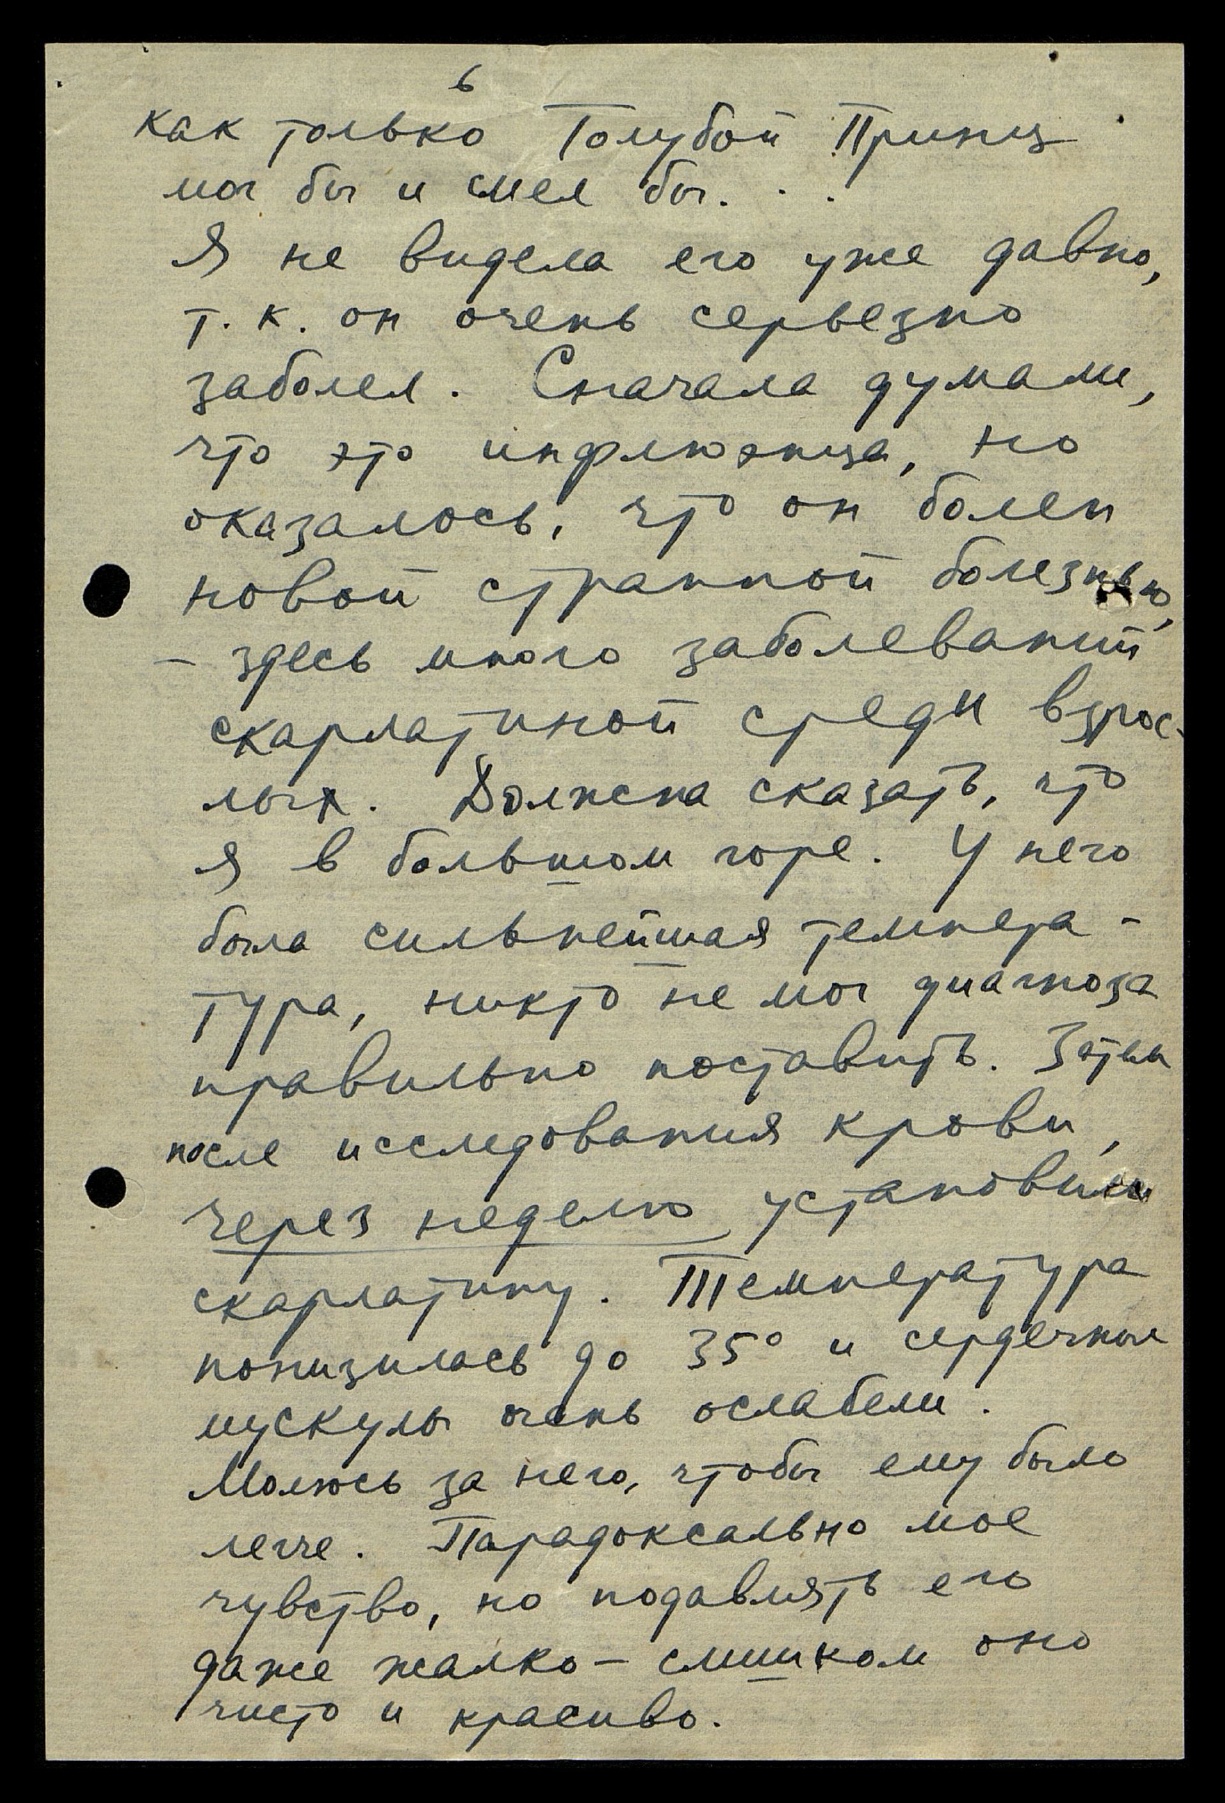 6
как только Голубой Принц
мог бы и смел бы. . .
Я не видела его уже давно,
т. к. он очень серьезно
заболел. Сначала думали,
что это инфлюэнца, но
оказалось, что он болен
новой странной болезнью,
– здесь много заболеваний
скарлатиной среди взрос-
лых. Должна сказать, что
я в большом горе. У него
была сильнейшая темпера-
тура, никто не мог диагноза
правильно поставить. Затем
после исследования крови,
через неделю установили
скарлатину. Температура
понизилась до 35° и сердечные
мускулы очень ослабели.
Молюсь за него, чтобы ему было
легче. Парадоксально мое
чувство, но подавлять его
даже жалко – слишком оно
чисто и красиво.